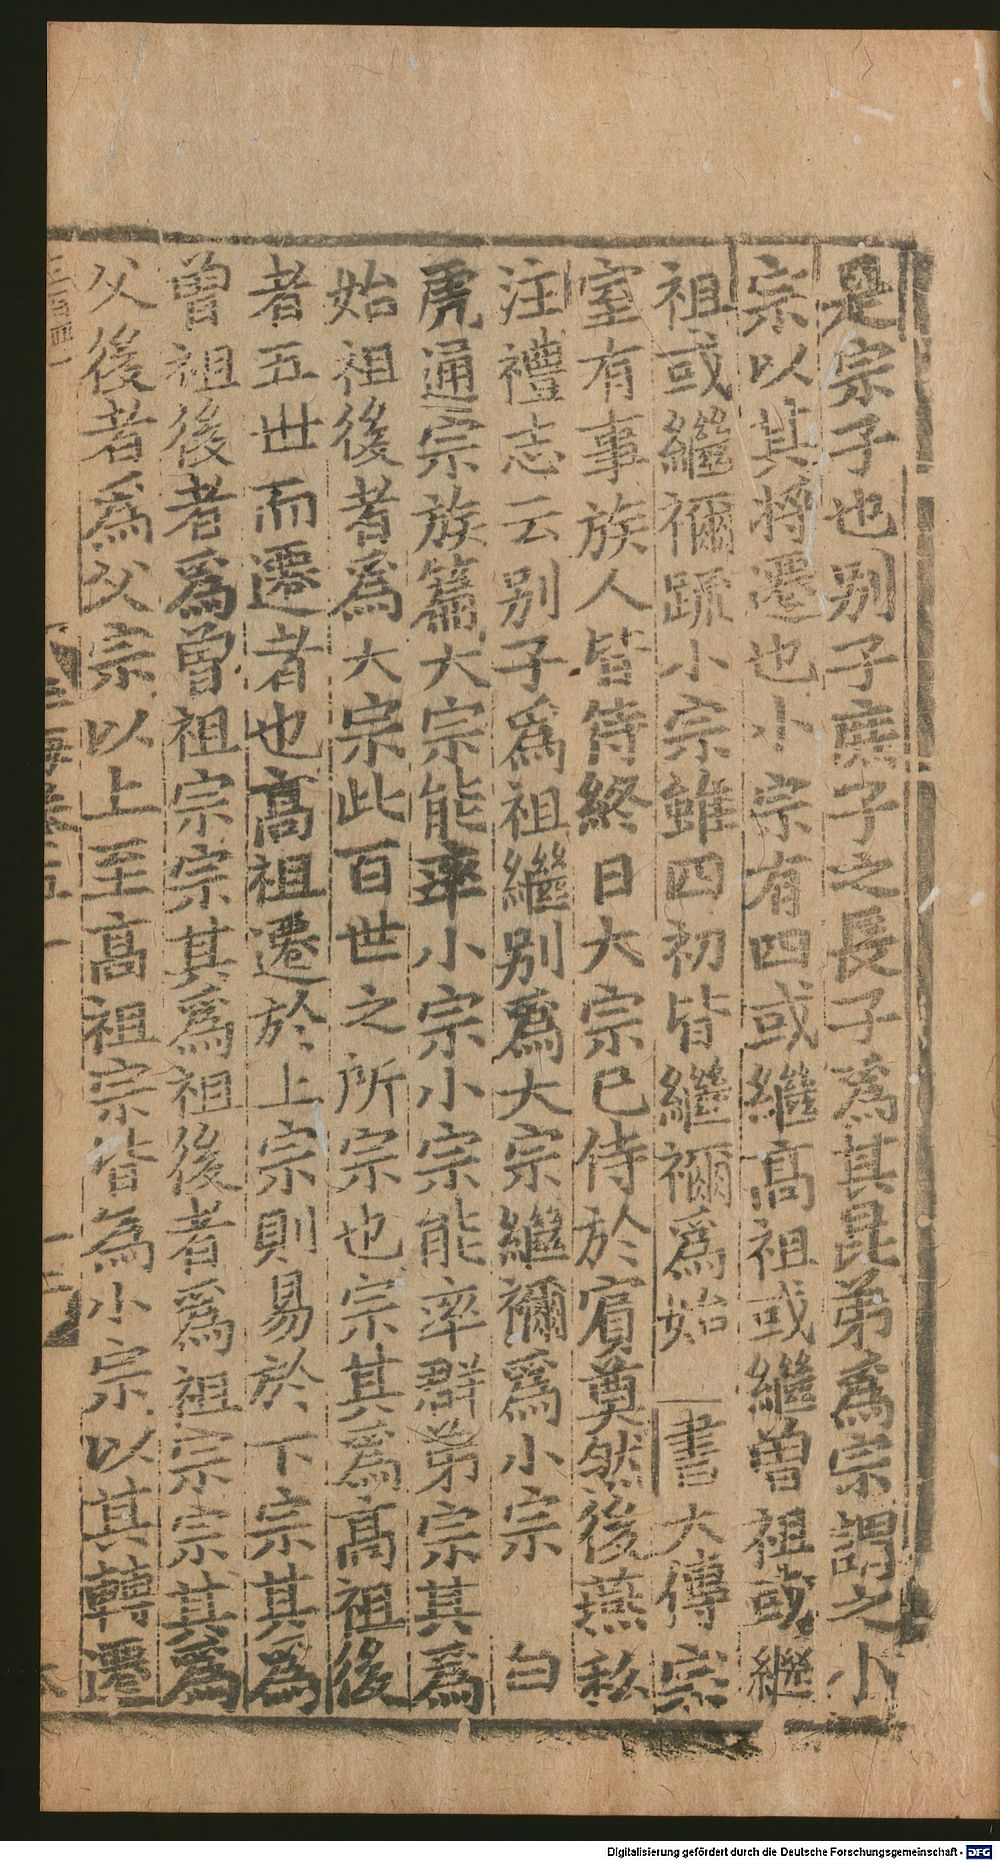 是宗子也别子庶子之長子為其昆弟為宗謂之小
宗以其將遷也小宗有四或繼髙祖或繼曽祖或繼
祖或繼禰䟽小宗雖四初皆繼禰為始　書大傳宗
室有事族人皆侍終日大宗已侍於賔奠然後燕私
注禮志云别子爲祖繼别爲大宗繼禰爲小宗　白
虎通宗族篇大宗能率小宗小宗能率群弟宗其爲
始祖後者爲大宗此百世之所宗也宗其爲髙祖後
者五世而遷者也髙祖遷於上宗則易於下宗其爲
曽祖後者爲曽祖宗宗其爲祖後者爲祖宗宗其爲
父後者爲父宗以上至髙祖宗皆為小宗以其轉遷
Digitalisierung gefördert durch die Deutsche Forschungsgemeinschaft - DFG